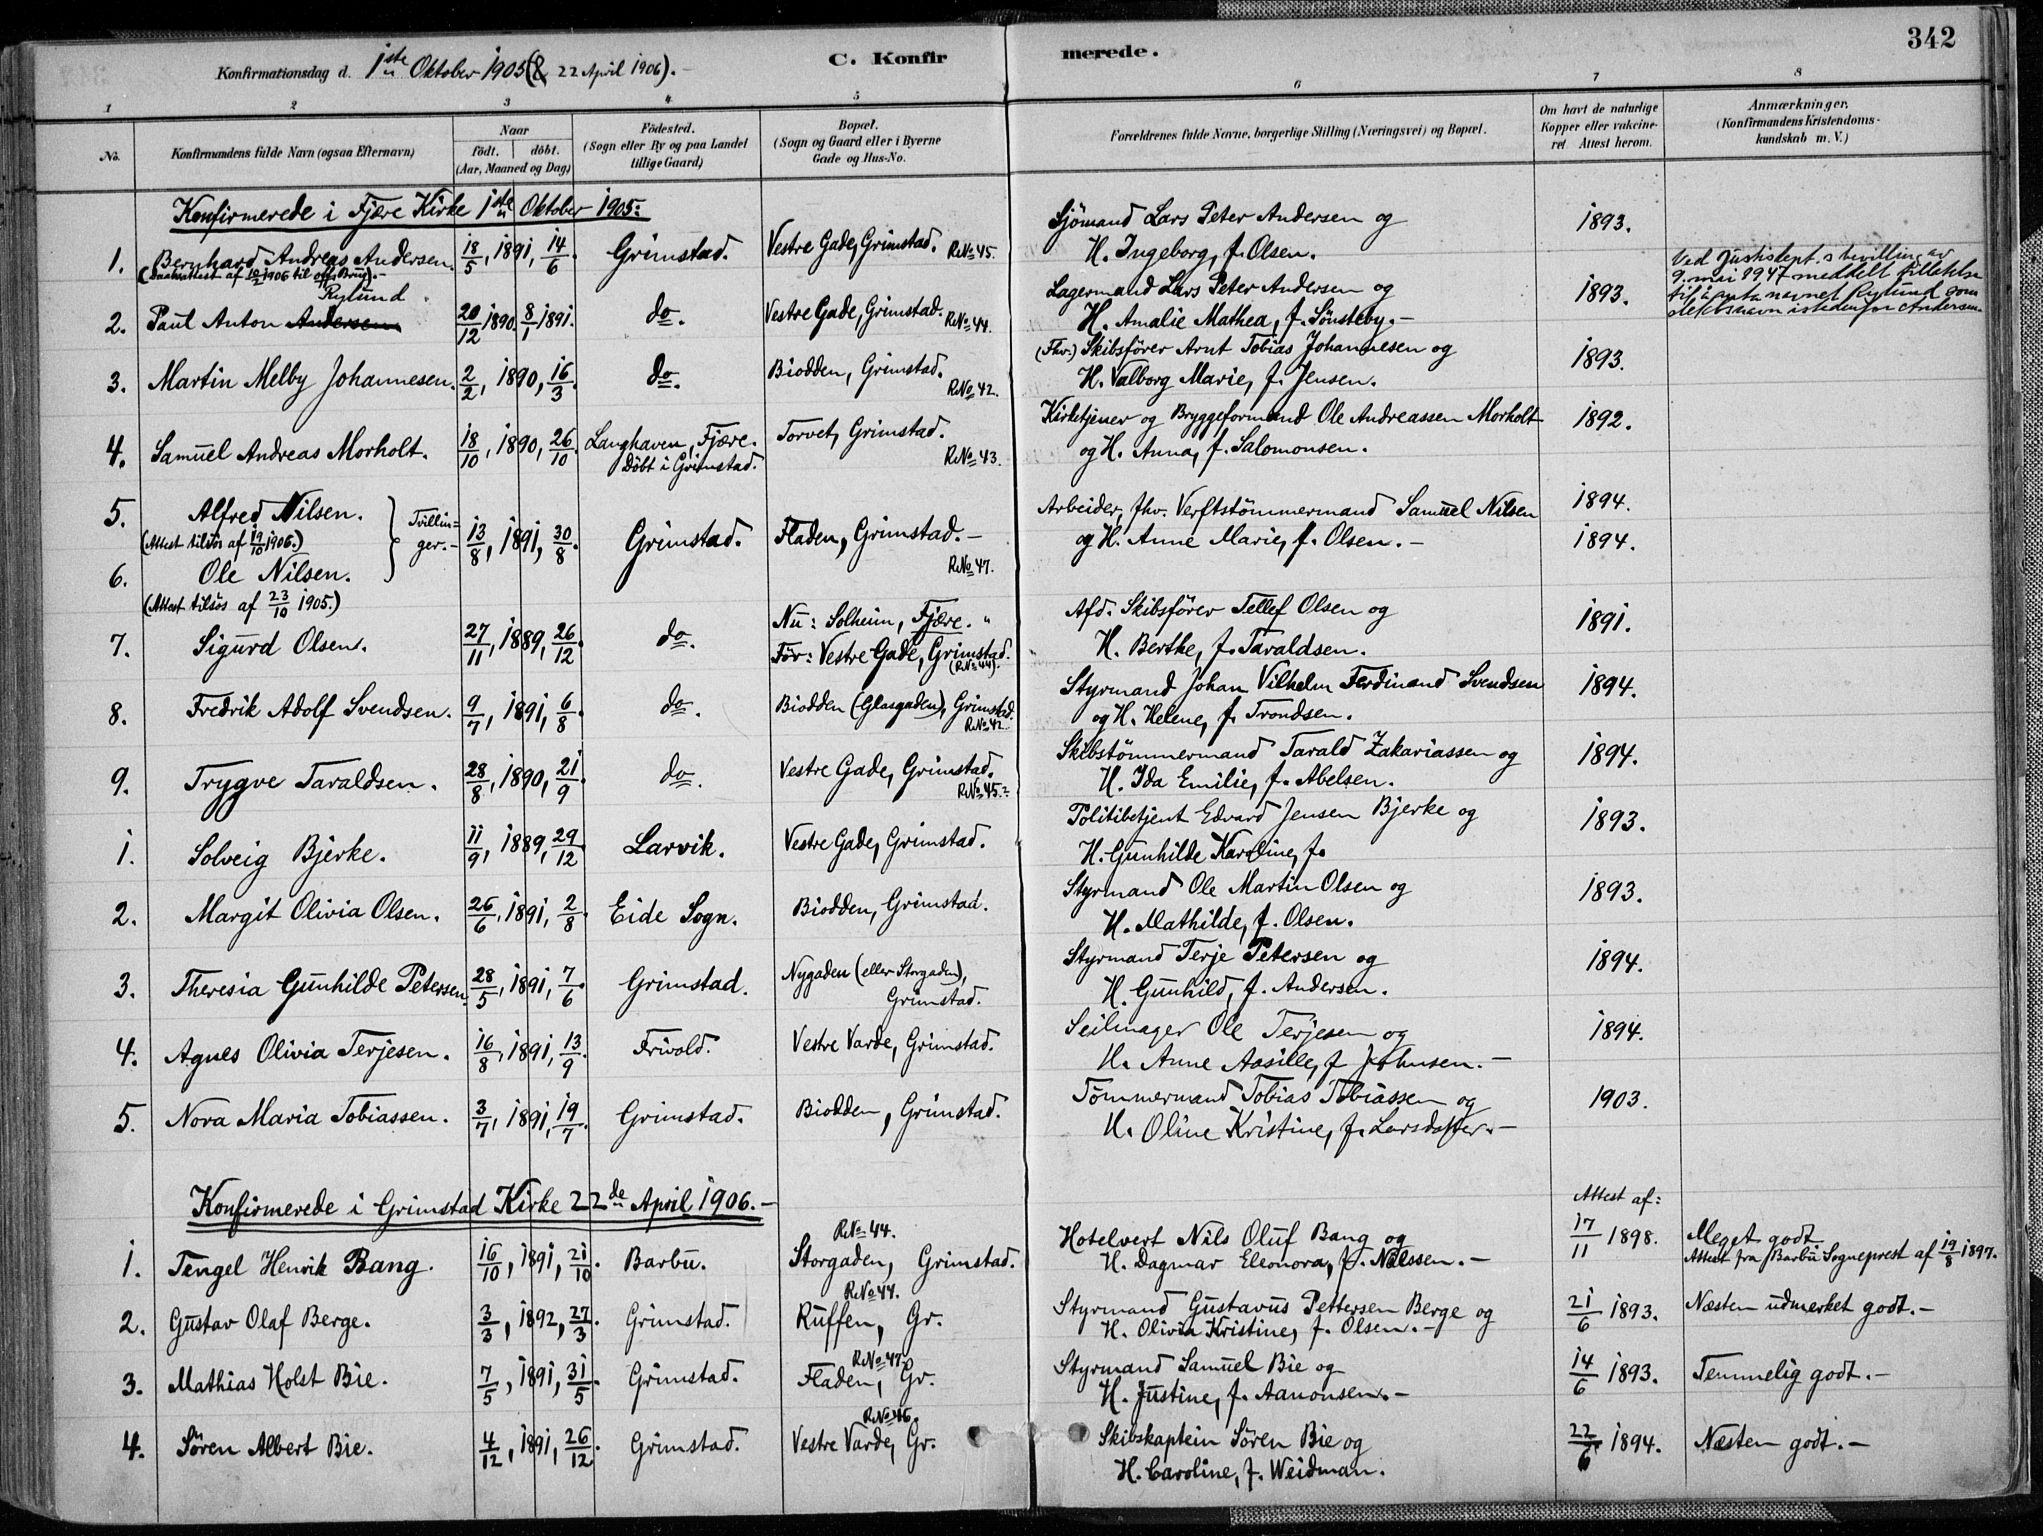 342
Konfirmationsdag d. 1ste Oktober 1905 (& 22 April 1906).-
C. Konfirmerede.
1 2 3 4 5 6 7 8
No.
Konfirmandens fulde Navn (ogsaa Efternavn)
Naar
födt. döbt.
(Aar, Maaned og Dag)
Födested.
(Sogn eller By og paa Landet
tillige Gaard)
Bopæl.
(Sogn og Gaard eller i Byerne
Gade og Hus-No.
Forældrenes fulde Navne, borgerlige Stilling (Næringsvei) og Bopæl.
Om havt de naturlige
Kopper eller vakcine-
ret. Attest herom.
Anmærkninger.
(Konfirmandens Kristendoms-
kundskab m. V.)
Konfirmerede i Fjære Kirke 1ste Oktober 1905:
1. Bernhard Andreas Andersen. 18/5, 1891, 14/6. Grimstad. Vestre Gade, Grimstad. R.No 45. Sjömand Lars Peter Andersen og 1893.
H. Ingeborg, f. Olsen.
af 10/2 1906 til off. Brug).-
Rylund
2. Paul Anton Andersen 20/12 1890. 8/1 1891. do. Vestre Gade, Grimstad. R.No 44. Lagermand Lars Peter Andersen og 1893.
H. Amalie Mathea, f. Sönsteby.-
Ved Justisdept.s bevilling av
9. mai 1947 meddelt tillatelse
til å anta navnet Rylund som
slektsnavn istedenfor Andersen.
3. Martin Melby Johannesen. 2/2, 1890, 16/3. do. Biodden, Grimstad. R.No 42. (Fhv.) Skibsförer Arnt Tobias Johannesen og 1893.
H. Valborg Marie, f. Jensen.
4. Samuel Andreas Morholt. 18/10, 1890, 26/10. Langhaven, Fjære. Torvet, Grimstad. R.No 43. Kirketjener og Bryggeformand Ole Andreassen Morholt 1892.
Döbt i Grimstad. og H. Anna, f. Salomonsen.
5. Alfred Nilsen. Tvillin- Arbeider, fhv. Verftstömmermand Samuel Nilsen 1894.
(Attest tilsös af 19/10 1906.) ger.- 13/8, 1891, 30/8. Grimstad. Fladen, Grimstad.- og H. Anne Marie, f. Olsen.- 1894.
6. Ole Nilsen. R.No 47.
(Attest tilsös af 23/10 1905.)
7. Sigurd Olsen. 27/11, 1889, 26/12. do. Nu: Solheim, Fjære. Afd. Skibsförer Tellef Olsen og 1891.
För: Vestre Gade, Grimstad. (R.No 44). H. Berthe, f. Taraldsen.
8. Fredrik Adolf Svendsen. 9/7, 1891, 6/8. do. Biodden (Glasgaden), Grimstad. R.No 42. Styrmand Johan Vilhelm Ferdinand Svendsen 1894.
og H. Helene, f. Trondsen.
9. Trygve Taraldsen. 28/8, 1890, 21/9. do. Vestre Gade, Grimstad. R.No 45. Skibstömmermand Tarald Zakariassen og 1894.
H. Ida Emilie, f. Abelsen.
1. Solveig Bjerke. 11/9, 1889, 29/12. Larvik. Vestre Gade, Grimstad. Politibetjent Edvard Jensen Bjerke og 1893.
H. Gunhilde Karoline, f.
2. Margit Olivia Olsen. 26/6, 1891, 2/8. Eide Sogn. Biodden, Grimstad. Styrmand Ole Martin Olsen og 1893.
H. Mathilde, f. Olsen.
3. Theresia Gunhilde Petersen. 28/5, 1891, 7/6. Grimstad. Nygaden (eller Storgaden), Grimstad. Styrmand Terje Petersen og 1894.
H. Gunhild, f. Andersen.
4. Agnes Olivia Terjesen. 16/8, 1891, 13/9. Frivold. Vestre Varde, Grimstad. Seilmager Ole Terjesen og 1894.
H. Anne Aasille, f. Johnsen.-
5. Nora Maria Tobiassen. 3/7, 1891, 19/7. Grimstad. Biodden, Grimstad. Tömmermand Tobias Tobiassen og 1903.
H. Oline Kristine, f. Larsdatter.-
Konfirmerede i Grimstad Kirke 22de April 1906.-
Attest af:
1. Tengel Henrik Bang. 16/10, 1891, 21/10. Barbu. R.No 44. Storgaden, Grimstad. Hotelvert Nils Oluf Bang og 17/11 1898. Meget godt
H. Dagmar Eleonora, f. Nilssen.- Attest fra Barbu Sogneprest af 19/8 1897.
2. Gustav Olaf Berge. 3/3, 1892, 27/3. Grimstad. R.No 44. Ruffen, Gr. Styrmand Gustavus Pettersen Berge og 21/6 1893. Næsten udmerket godt.-
H. Olivia Kristine, f. Olsen.-
3. Mathias Holst Bie. 7/5, 1891, 31/5. Grimstad. R.No 47. Fladen, Gr. Styrmand Samuel Bie og 14/6 1893. Temmelig godt.-
H. Justine, f. Aanonsen.-
4. Sören Albert Bie. 4/12, 1891, 26/12. Grimstad. R.No 46. Vestre Varde, Gr. Skibskaptein Sören Bie og 22/6 1894. Næsten godt.-
H. Caroline, f. Weidman.